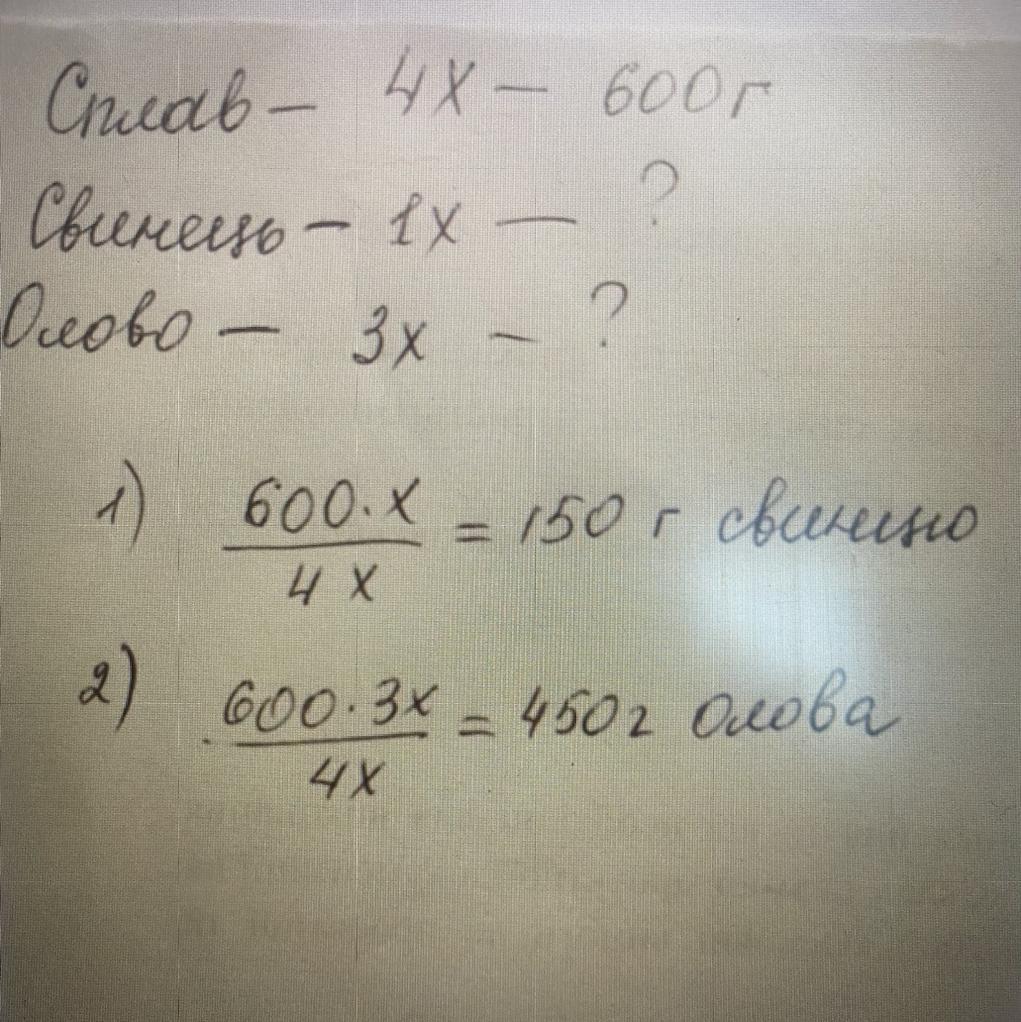 Сплав – 4х – 600г
Свинець – 1х – ?
Олово – 3х – ?
1) 600·х / 4х = 150 г свинцю
2) 600·3х / 4х = 450г олова